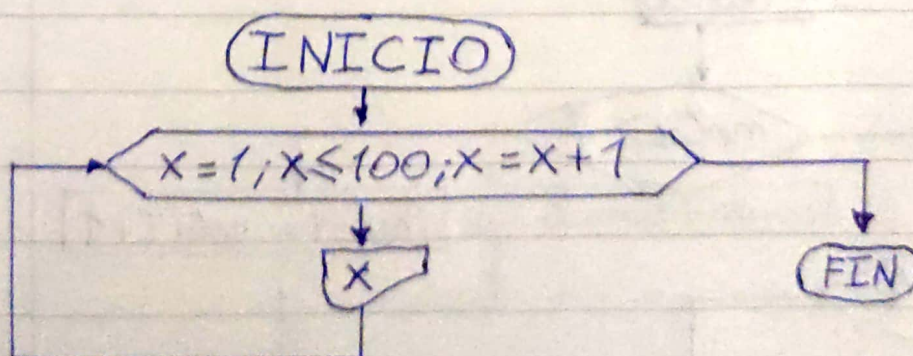 INICIO
X=1; X≤100; X=X+1
X
FIN